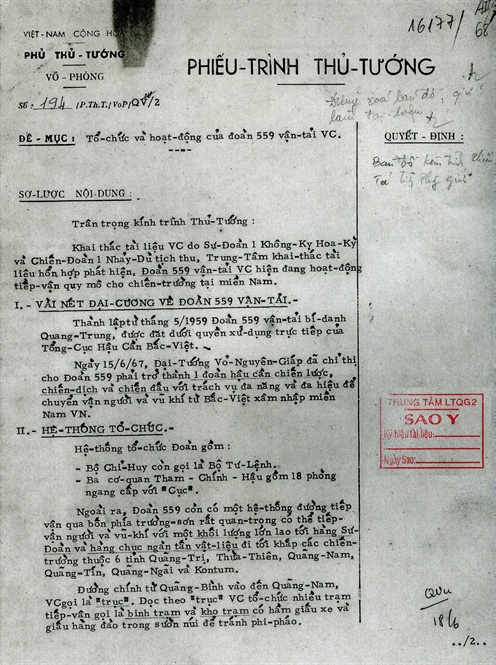 16177/
68
VIỆT-NAM CỘNG HÒA
PHỦ THỦ-TƯỚNG
VÕ-PHÒNG
Số: 194 /P.Th.T./VoP/QV/2
PHIẾU-TRÌNH THỦ-TƯỚNG
ĐỀ-MỤC: Tổ-chức và hoạt-động của đoàn 559 vận-tải VC.
QUYẾT-ĐỊNH:
SƠ-LƯỢC NỘI-DUNG:
Trân trọng kính trình Thủ-Tướng:
Khai thác tài liệu VC do Sư-Đoàn 1 Không-Kỵ Hoa-Kỳ
và Chiến-Đoàn 1 Nhảy-Dù tịch thu, Trung-Tâm khai-thác tài
liệu hỗn hợp phát hiện, Đoàn 559 vận-tải VC hiện đang hoạt-động
tiếp-vận quy mô cho chiến-trường tại miền Nam.
I.- VÀI NÉT ĐẠI-CƯƠNG VỀ ĐOÀN 559 VẬN-TẢI.-
Thành lập từ tháng 5/1959 Đoàn 559 vận-tải bí-danh
Quang-Trung, được đặt dưới quyền xử-dụng trực tiếp của
Tổng-Cục Hậu Cần Bắc-Việt.
Ngày 15/6/67, Đại-Tướng Võ-Nguyên-Giáp đã chỉ thị
cho Đoàn 559 phải trở thành 1 đoàn hậu cần chiến lược,
chiến-dịch và chiến đấu với trách vụ đa năng và đa hiệu để
chuyển vận người và vũ khí từ Bắc-Việt xâm nhập miền
Nam VN.
II.- HỆ-THỐNG TỔ-CHỨC.-
Hệ-thống tổ-chức Đoàn gồm:
- Bộ Chỉ-Huy còn gọi là Bộ Tư-Lệnh.
- Ba cơ-quan Tham - Chính - Hậu gồm 18 phòng
ngang cấp với "Cục".
Ngoài ra, Đoàn 559 còn có một hệ-thống đường tiếp
vận qua bốn phía trường-sơn rất quan-trọng có thể tiếp-
vận người và vu-khí với một khối lượng lớn lao tới hàng Sư-
Đoàn và hàng chục ngàn tấn vật-liệu đi tới khắp các chiến-
trường thuộc 6 tỉnh Quảng-Trị, Thừa-Thiên, Quảng-Nam,
Quảng-Tín, Quảng-Ngãi và Kontum.
Đường chính từ Quảng-Bình vào đến Quảng-Nam,
VC gọi là "trục". Dọc theo "trục" VC tổ-chức nhiều trạm
tiếp-vận gọi là binh trạm và kho trạm có hầm giấu xe và
giấu hàng đào trong sườn núi để tránh phi-pháo.
TRUNG TÂM LTQG2
SAO Y
Ký hiệu tài liệu:
Ngày Sao:
18/6
../2..